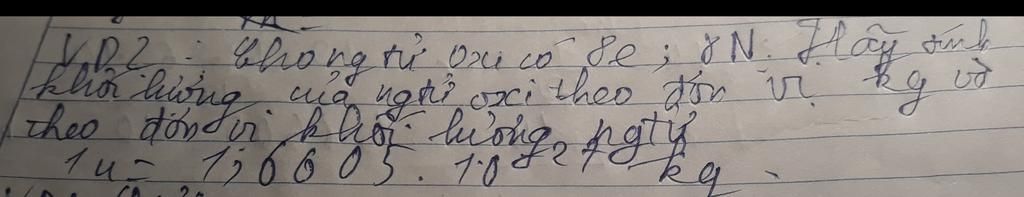 VD2: Trong tử oxi có 8e; 8N. Hãy tính
khối lượng của ngtử oxi theo đơn vị kg và
theo đơn vị khối lượng ngtử
1u = 1,6605.10-27 kg